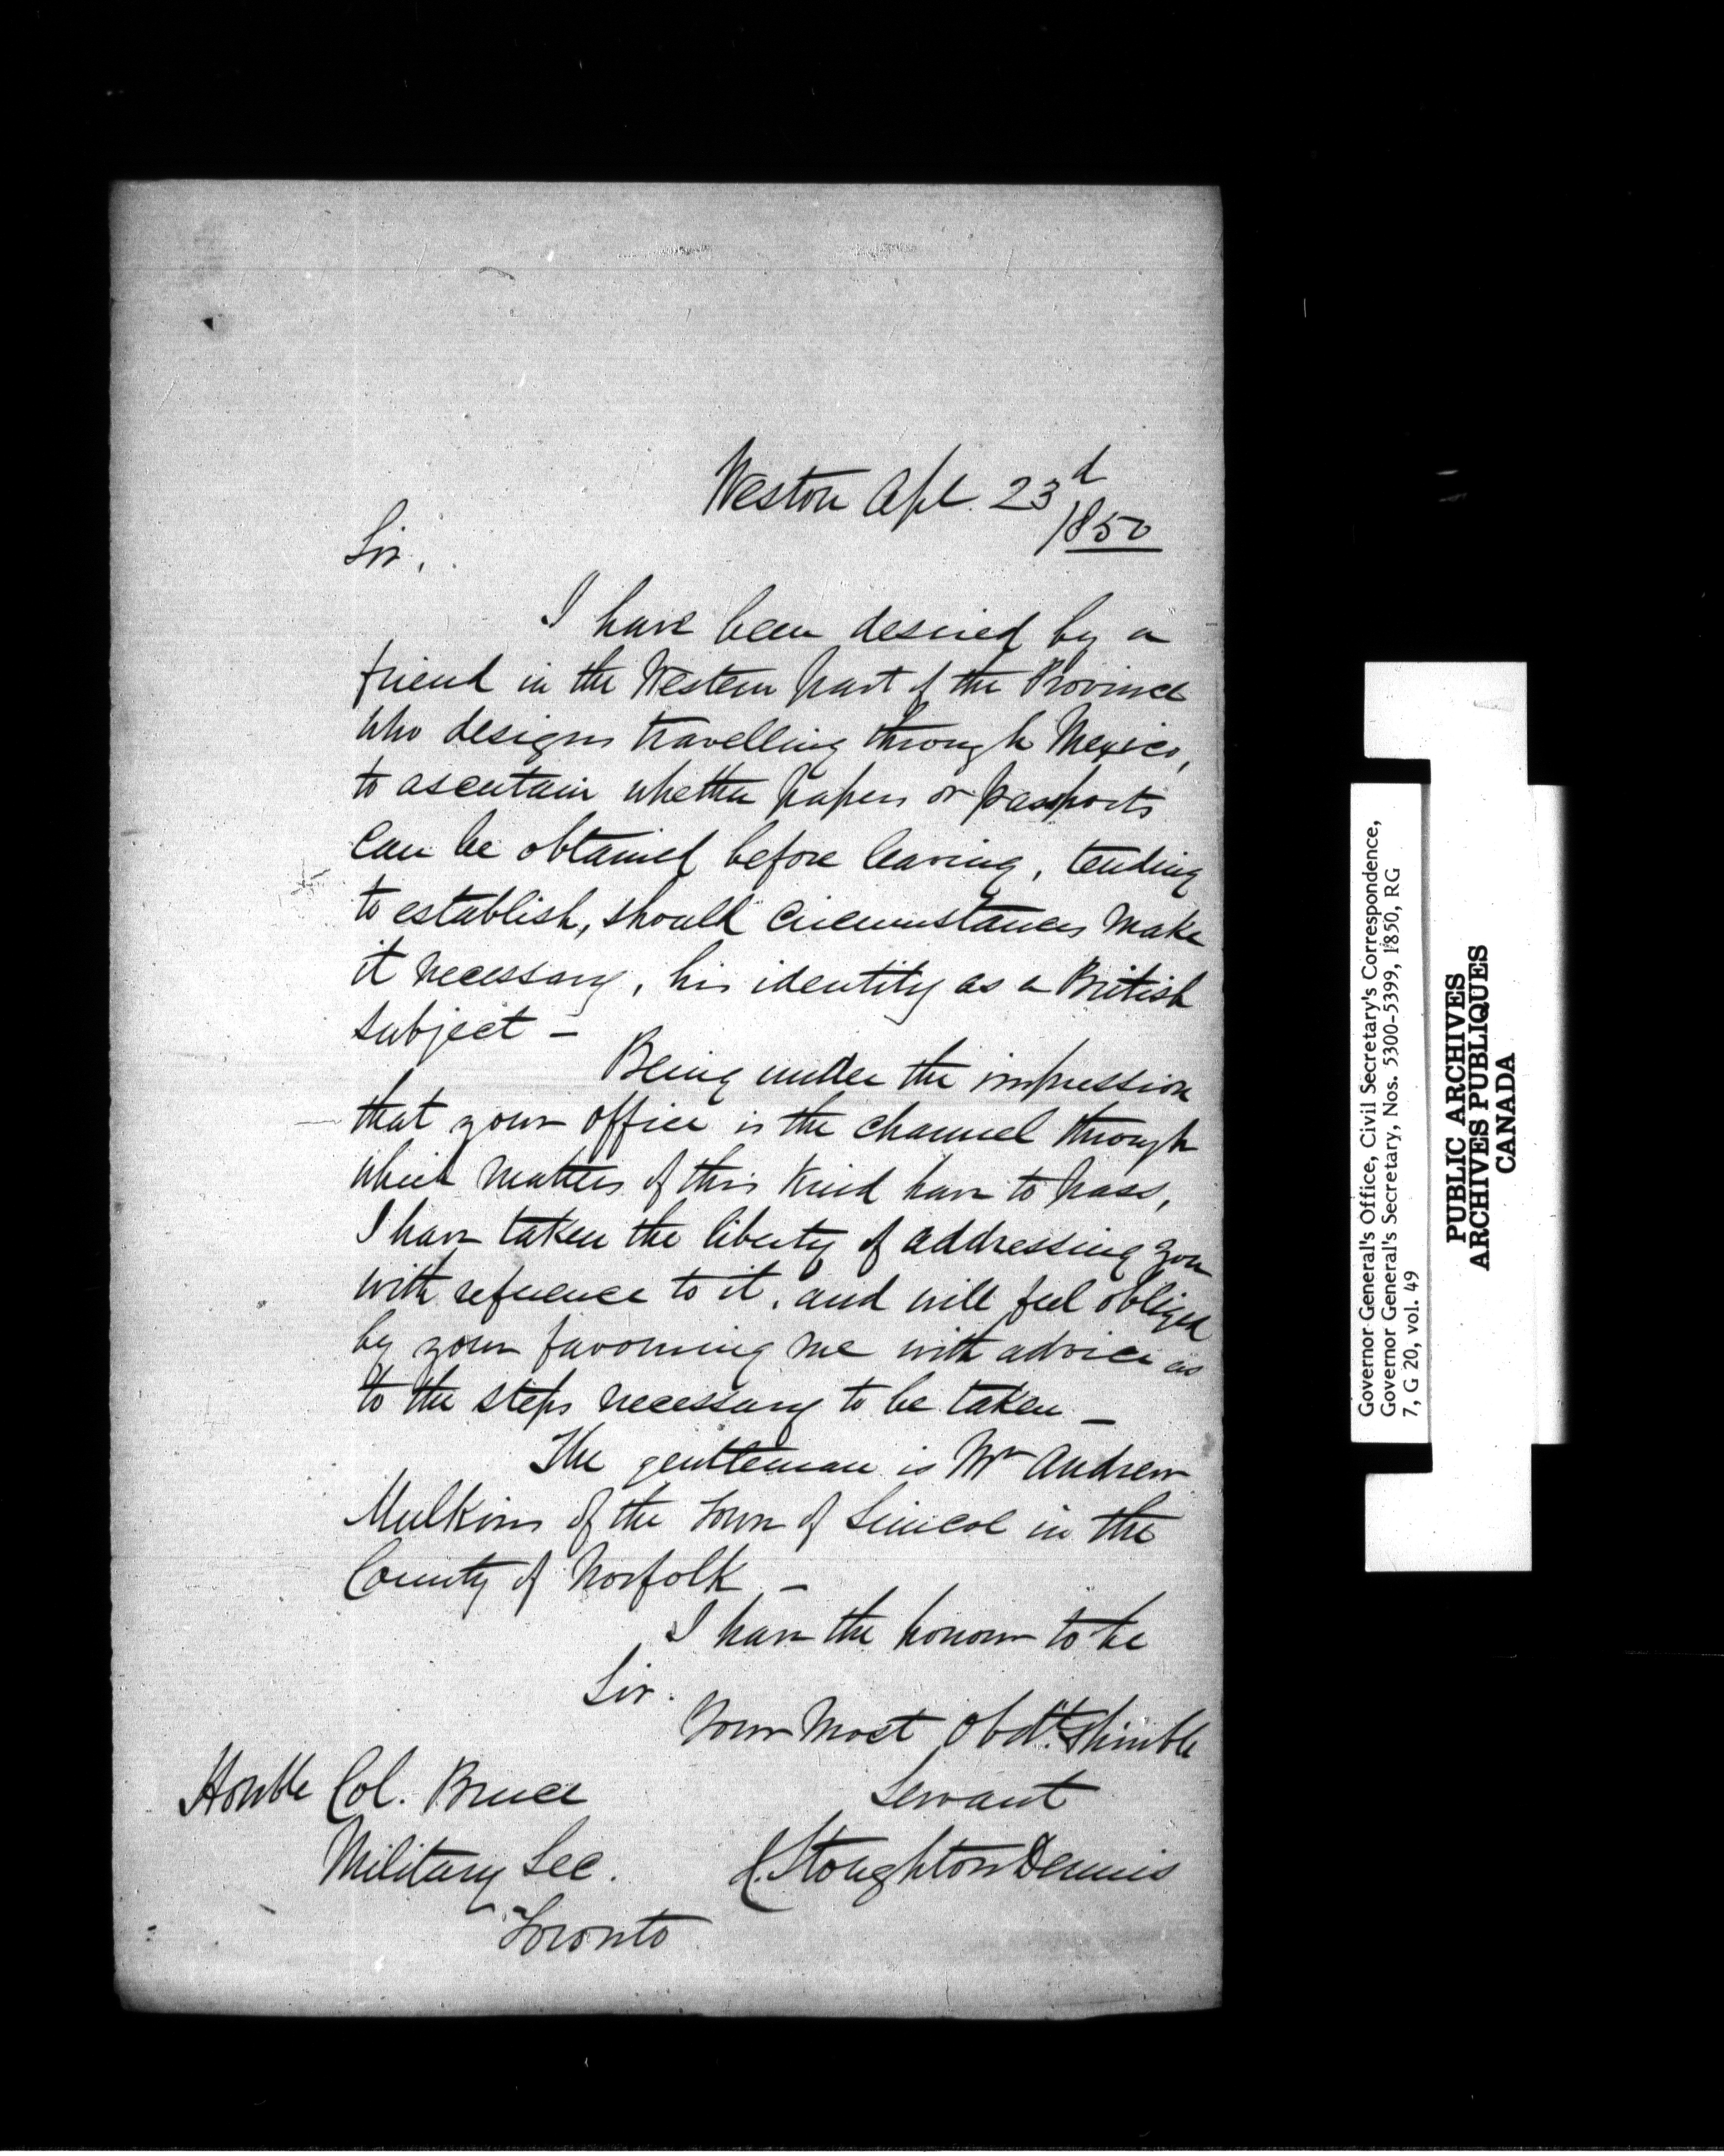 Weston Apl. 23d
1850
Sir,
I have been desired by a
friend in the Western part of the Province
who designs travelling through Mexico,
to ascertain whether papers or passports
can be obtained before leaving, tending
to establish, should circumstances make
it necessary, his identity as a British
subject –
Being under the impression
that your office is the channel through
which matters of this kind have to pass,
I have taken the liberty of addressing you
with reference to it, and will feel obliged
by your favouring me with advice as
to the steps necessary to be taken –
The gentleman is Mr Andrew
Mulkins of the Town of Simcoe in the
County of Norfolk –
I have the honour to be
Sir.
Your most obdt. & humble
Servant
J. Stoughton Dennis
Honble Col. Bruce
Military Sec.
Toronto
Governor General's Office, Civil Secretary's Correspondence,
Governor General's Secretary, Nos. 5300-5399, 1850, RG
7, G 20, vol. 49
PUBLIC ARCHIVES
ARCHIVES PUBLIQUES
CANADA